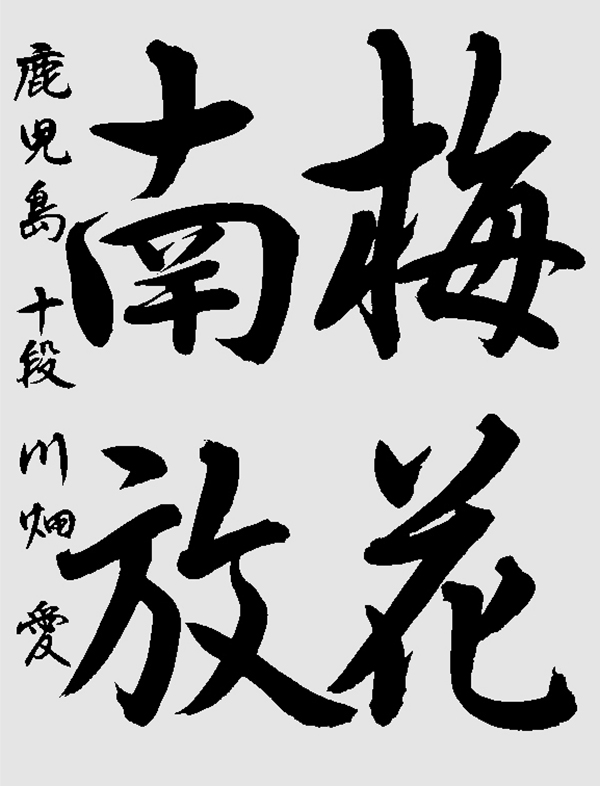 梅花
南放
鹿児島 十段 川畑 愛